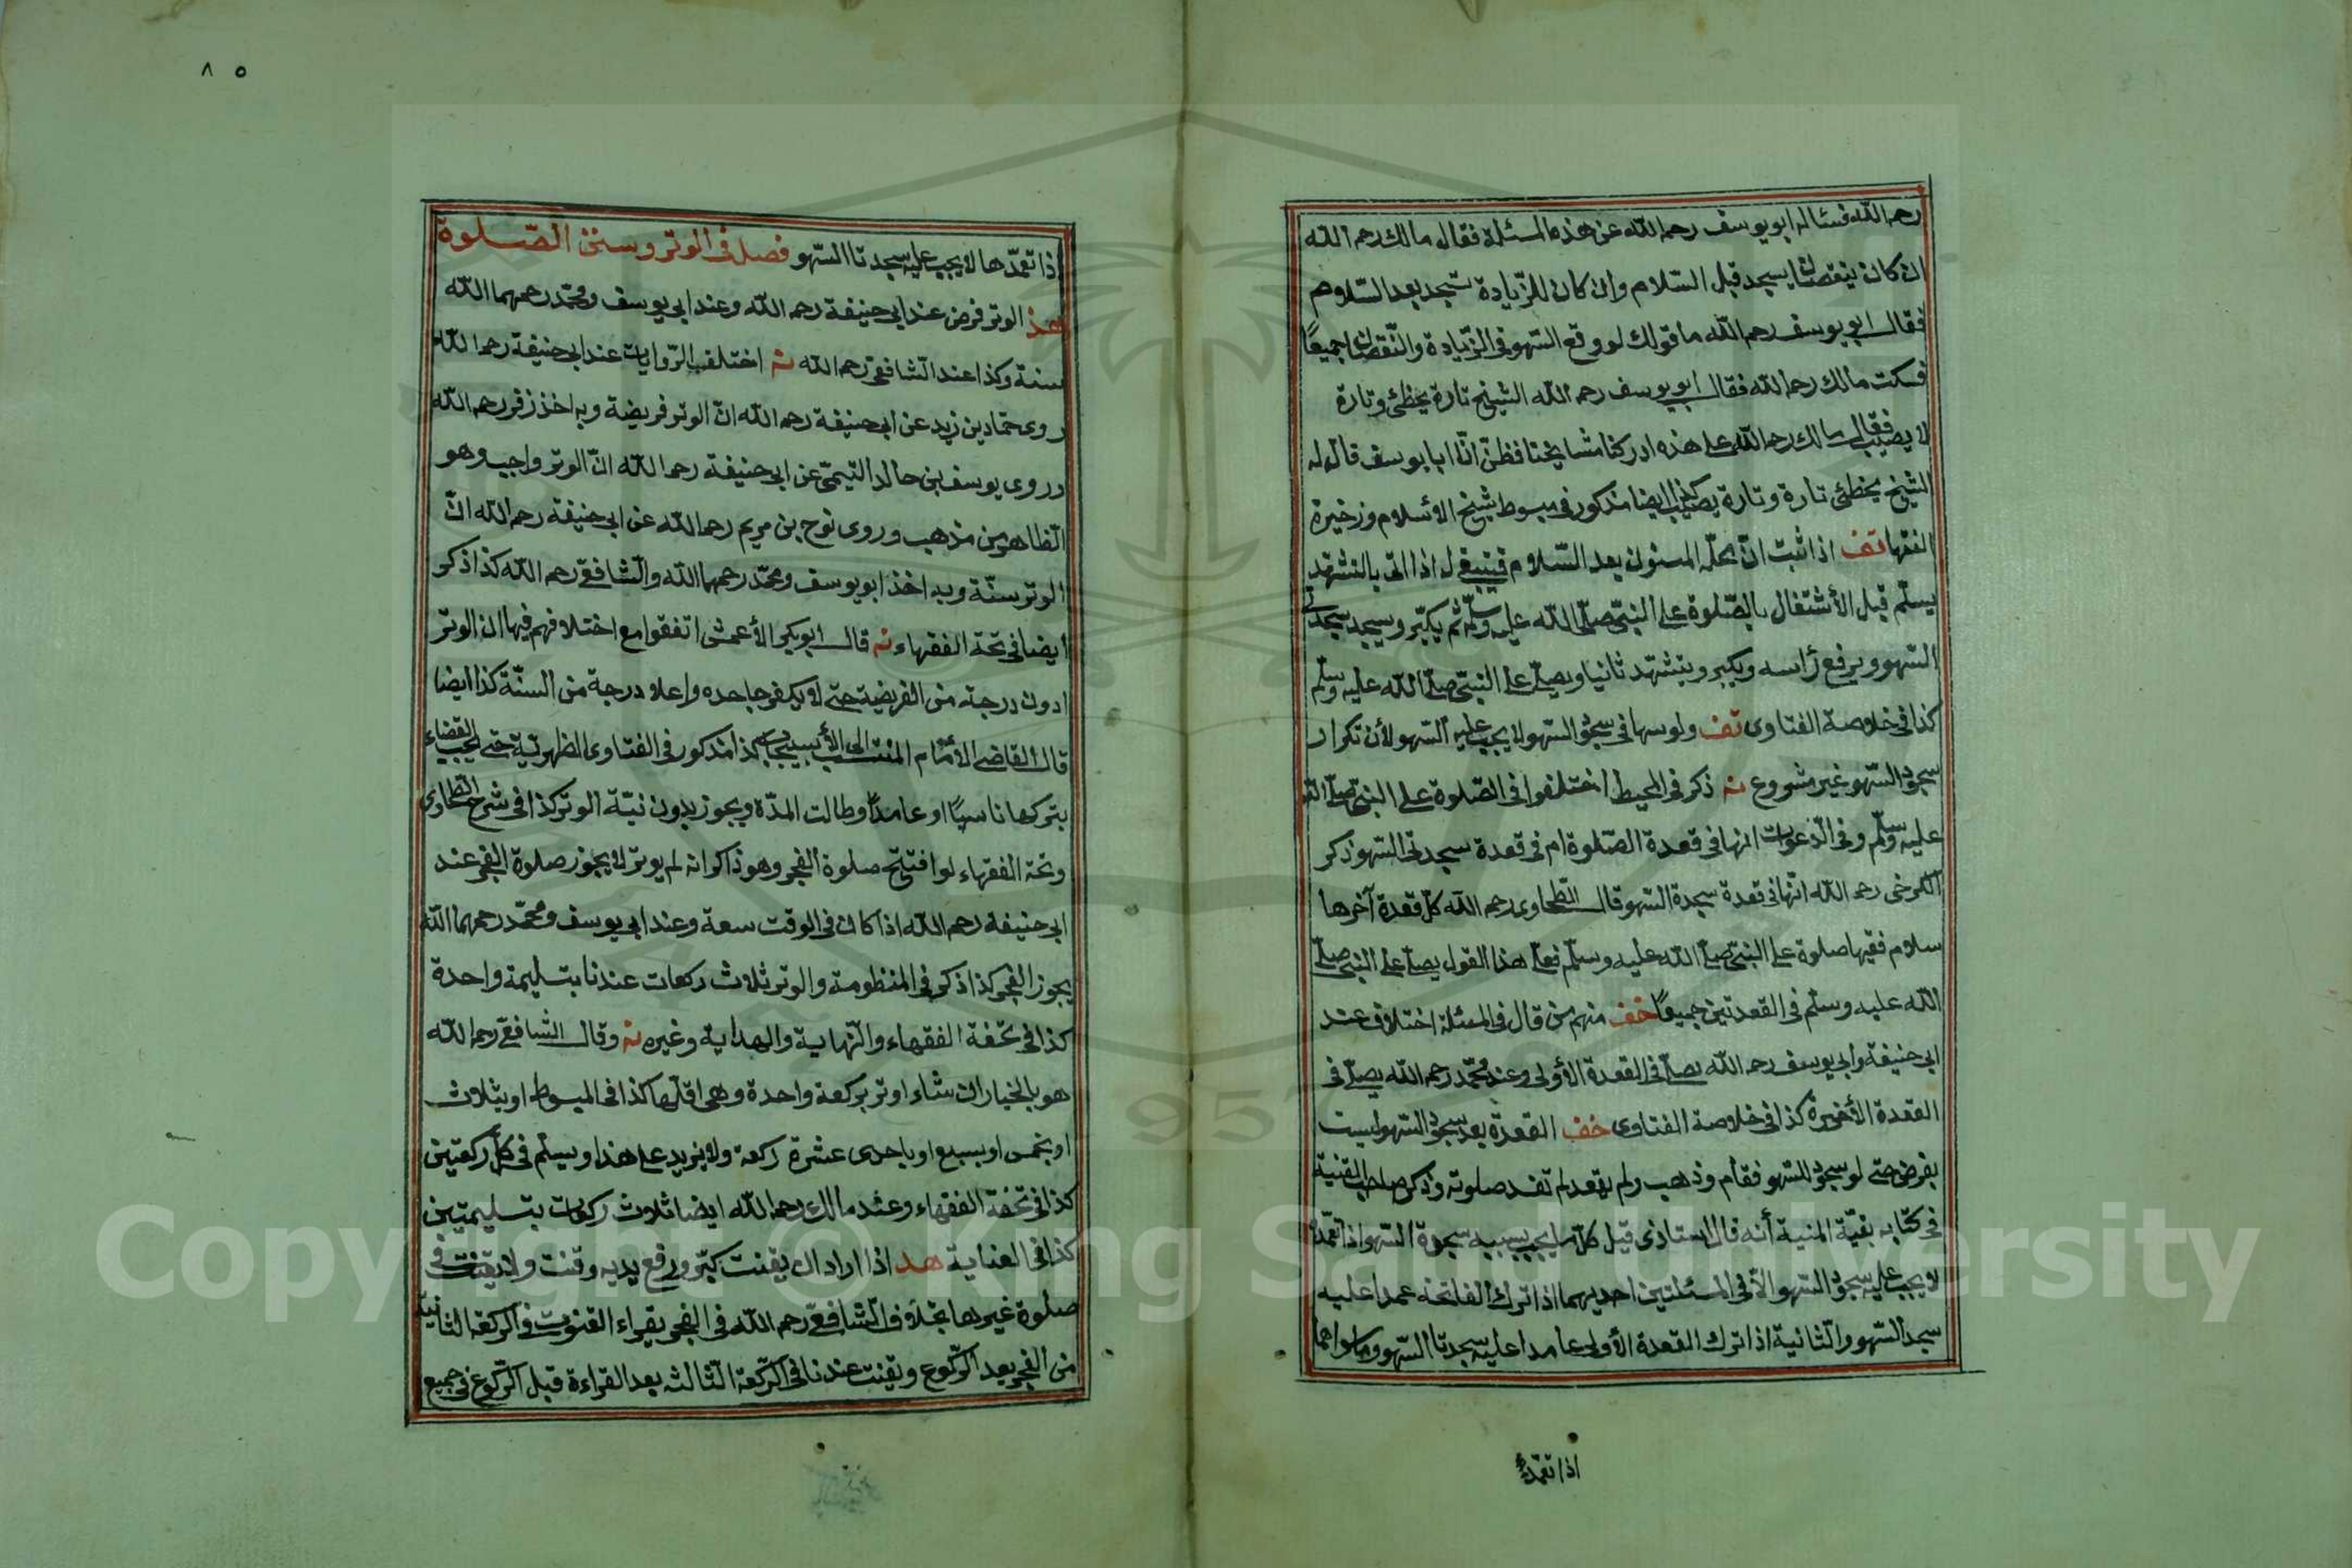 رحمه الله فسئاله ابو يوسف رحمه الله عن هذه المسئلة فقال مالك رحمه الله
ان كان ينقصان يسجد قبل السّلام وان كان للزّيادة تسجد بعد السّلام
فقال ابو يوسف رحمه الله ما قولك لو وقع السّهو فى الزّيادة والنّقصان جميعًا
فسكت مالك رحمه الله فقال ابو يوسف رحمه الله الشّيخ تارة يخطئ وتارة
لا يصيب فقال مالك رحمه الله على هذه ادركنا مشايخنا فظنّ انّ ابا يوسف قال له
الشّيخ يخطئ تارة وتارة يصيب كذا ايضا مذكور فى مبسوط شيخ الاسلام وزخيرة
الفقها تف اذا ثبت انّ محلّه المسنون بعد السّلام فينبغى له اذا اتى بالتشهّد
يسلّم قبل الأشتغال بالصّلوة على النبىّ صلّى الله عليه وسلّم ثم يكبّر ويسجد سجدتى
السّهو ويرفع رأسه ويكبر ويتشهّد ثانيا ويصلّى على النبىّ صلّى الله عليه وسلّم
كذا فى خلاصة الفتاوى تف ولو سها فى سجود السّهو لا يجب عليه السّهو لأن تكرار
سجود السّهو غير مشروع نه ذكر فى المحيط اختلفوا فى الصّلوة على النبىّ صلّى الله
عليه وسلّم وفى الدّعوات انها فى قعدة الصّلوة ام فى قعدة سجدتى السّهو ذكر
الكرخى رحمه الله انّها فى قعدة سجدة السّهو قال الطّحاوى رحمه الله كلّ قعدة آخرها
سلام ففيها صلوة على النبىّ صلّى الله عليه وسلّم فعلى هذا القول يصلّى على النبىّ صلّى
الله عليه وسلّم فى القعدتين جميعًا خف منهم من قال فى المسئلة اختلاف عند
ابى حنيفة وابى يوسف رحمه الله يصلّى فى القعدة الأولى وعند محمّد رحمه الله يصلّى فى
القعدة الأخيرة كذا فى خلاصة الفتاوى خف القعدة بعد سجود السّهو ليست
بفرض حتى لو سجد للسّهو فقام وذهب ولم يقعد لم تفسد صلوته وذكر صاحب القنية
فى كتابه بغيّة المنية أنه قال استاذى قيل كلّ ما يجب بسببه سجدة السّهو اذا تعمّد
لا يجب عليه سجود السّهو الّا فى المسئلتين احديهما اذا ترك الفاتحة عمدا عليه
سجد السّهو والثّانية اذا ترك القعدة الأولى عامدا عليه سجدتا السّهو وما سواهما
اذا تعمّد
٨٥
اذا تعمّدها لا يجب عليه سجدتا السّهو فصل فى الوتر وسنن الصّلوة
هد الوتر فرض عند ابى حنيفة رحمه الله وعند ابى يوسف ومحمّد رحمهما الله
سنة وكذا عند الشّافعى رحمه الله نه اختلف الرّوايات عند ابى حنيفة رحمه الله
روى حمّاد بن زيد عن ابى حنيفة رحمه الله انّ الوتر فريضة وبه اخذ زفر رحمه الله
وروى يوسف بن خالد التيمىّ عن ابى حنيفة رحمه الله انّ الوتر واجب وهو
الظّاهر من مذهب وروى نوح بن مريم رحمه الله عن ابى حنيفة رحمه الله انّ
الوتر سنّة وبه اخذ ابو يوسف ومحمّد رحمهما الله والشّافعى رحمه الله كذا ذكر
ايضا فى تحفة الفقهاء نه قال ابو بكر الأعمش اتفقوا مع اختلافهم فيها ان الوتر
ادون درجة من الفريضة حتى لا يكفر جاحده واعلا درجة من السنّة كذا ايضا
قال القاضى الأمام المنتسب الى الأسبيجاب كذا مذكور فى الفتاوى الظهريّة حتى يجب القضاء
بتركها ناسيًا او عامدًا وطالت المدّة ويجوز بدون نيّة الوتر كذا فى شرح الطّحاوى
وتحفة الفقهاء لو افتتح صلوة الفجر وهو ذاكر انه لم يوتر لا يجوز صلوة الفجر عند
ابى حنيفة رحمه الله اذا كان فى الوقت سعة وعند ابى يوسف ومحمّد رحمهما الله
يجوز الفجر كذا ذكر فى المنظومة والوتر ثلاث ركعات عندنا بتسليمة واحدة
كذا فى تحفة الفقهاء والنّهاية والهداية وغيره نه وقال الشّافعى رحمه الله
هو بالخيار ان شاء اوتر بركعة واحدة وهى اقلّها كذا فى المبسوط او بثلاث
او بخمس او بسبع او باحدى عشرة ركعة ولا يزيد على هذا ويسلّم فى كلّ ركعتين
كذا فى تحفة الفقهاء وعند مالك رحمه الله ايضا ثلاث ركعات بتسليمتين
كذا فى العناية هد اذا اراد ان يقنت كبّر ورفع يديه وقنت ولا يقنت فى
صلوة غيرها بخلاف الشّافعىّ رحمه الله فى الفجر يقراء القنوت فى الرّكعة الثانيّة
من الفجر بعد الرّكوع ويقنت عندنا فى الرّكعة الثّالثه بعد القراءة قبل الرّكوع فى جميع
Copyright © King Saud University
957